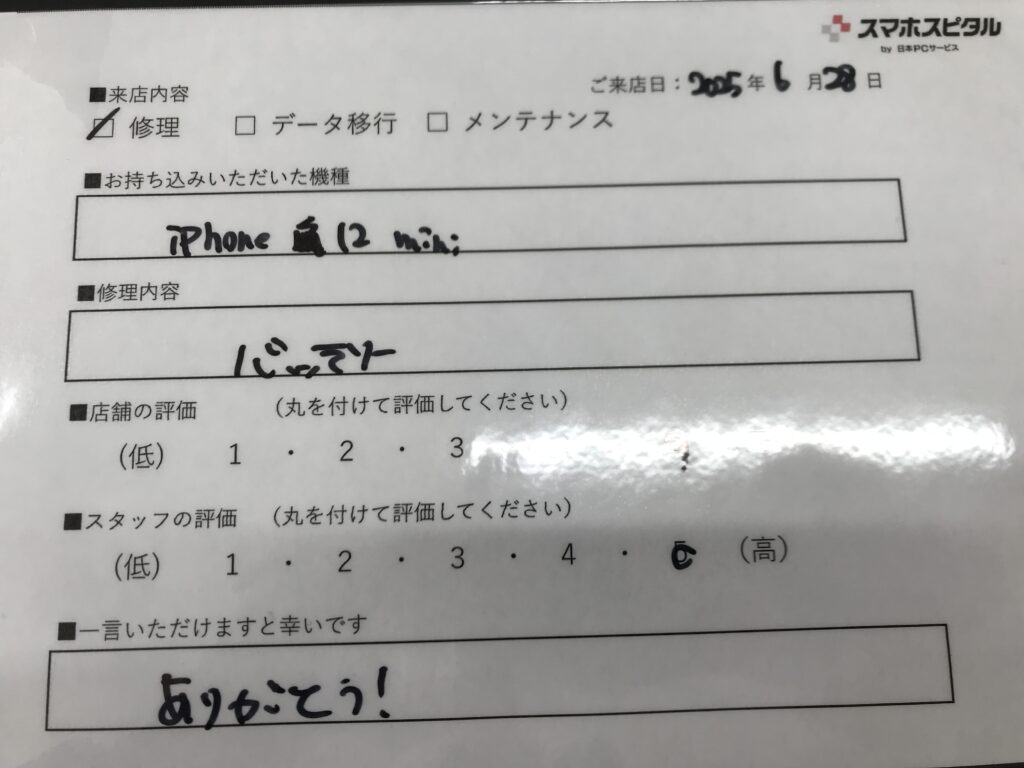 スマホスピタル
by 日本PCサービス
ご来店日：2025年6月28日
■来店内容
☑ 修理 □ データ移行 □ メンテナンス
■お持ち込みいただいた機種
iPhone 12 mini
■修理内容
バッテリー
■店舗の評価 （丸を付けて評価してください）
（低） 1 ・ 2 ・ 3
■スタッフの評価 （丸を付けて評価してください）
（低） 1 ・ 2 ・ 3 ・ 4 ・ 5 （高）
■一言いただけますと幸いです
ありがとう！